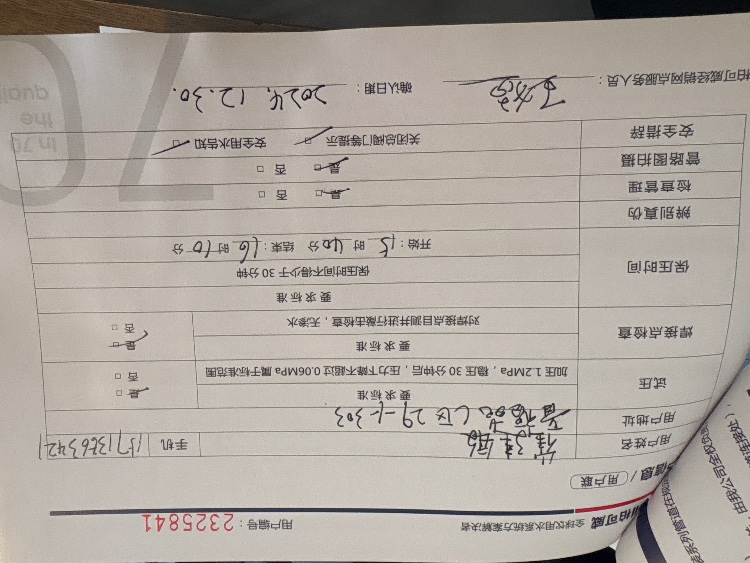 柏可威
全球饮用水系统方案解决者
用户编号：2325841
信息 / 用户联
用户姓名 手机
用户地址 C区 29-1-303
试压 要求标准 是 否
加压1.2MPa，稳压30分钟后，压力下降不超过0.06MPa属于标准范围
焊接点检查 要求标准 是 否
对焊接点目测并进行敲击检查，无渗水
保压时间 要求标准
保压时间不得少于30分钟
开始：15时40分 结束：16时10分
辨别真伪
检查管理 是 否
管路图拍摄 是 否
安全措辞 关闭总阀门等提示 安全用水告知
柏可威经销网点服务人员： 确认日期：2024.12.30.
In 70
the
quali
70